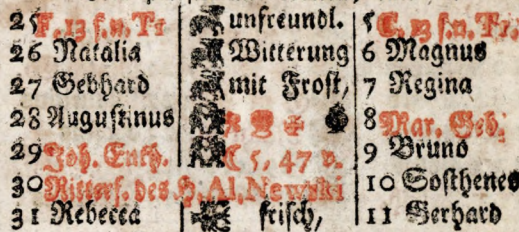 25 F. 13 s. n. Tr unfreundl. 5 C. 23 s. n. Tr.
26 Natalia Witterung 6 Magnus
27 Gebhard mit Frost, 7 Regina
28 Augustinus 8 Mar. Geb.
29 Joh. Enth. C 5, 47 v. 9 Bruno
30 Ritterf. des H. Al. Newski 10 Sosthenes
31 Rebecca frisch, 11 Gerhard